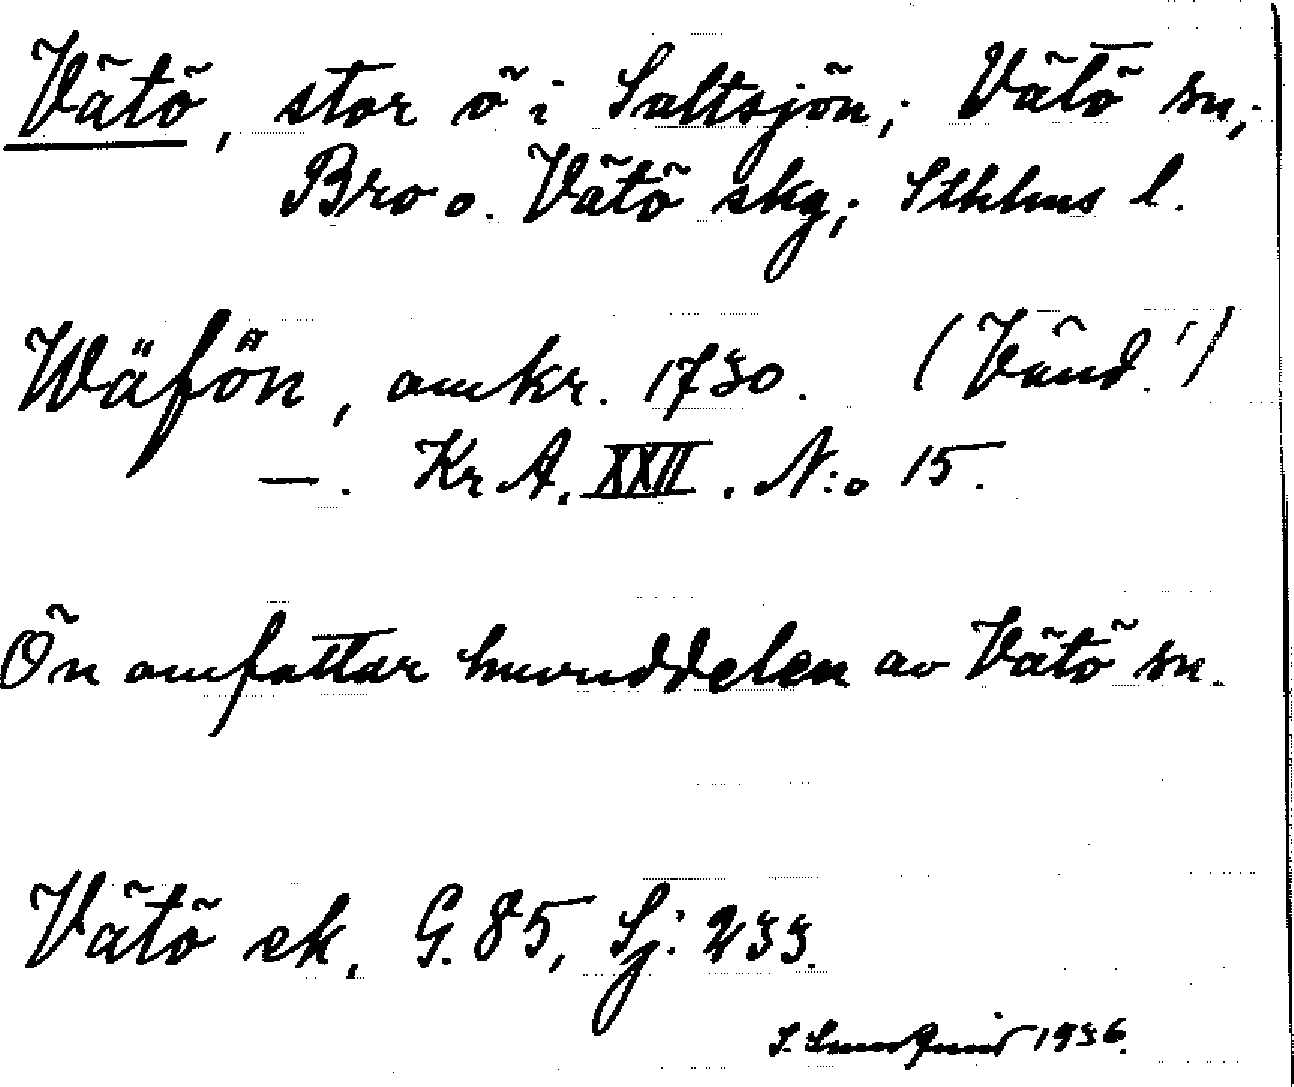 Vätö, stor ö i Saltsjön; Vätö sn,
Bro o. Vätö skg; Sthlms l.
Wäfön, omkr. 1730. (Vänd!)
—. Kr A. XXII. N:o 15.
Ön omfattar huvuddelen av Vätö sn.
Vätö ek. G. 85, Sj: 233.
1936.